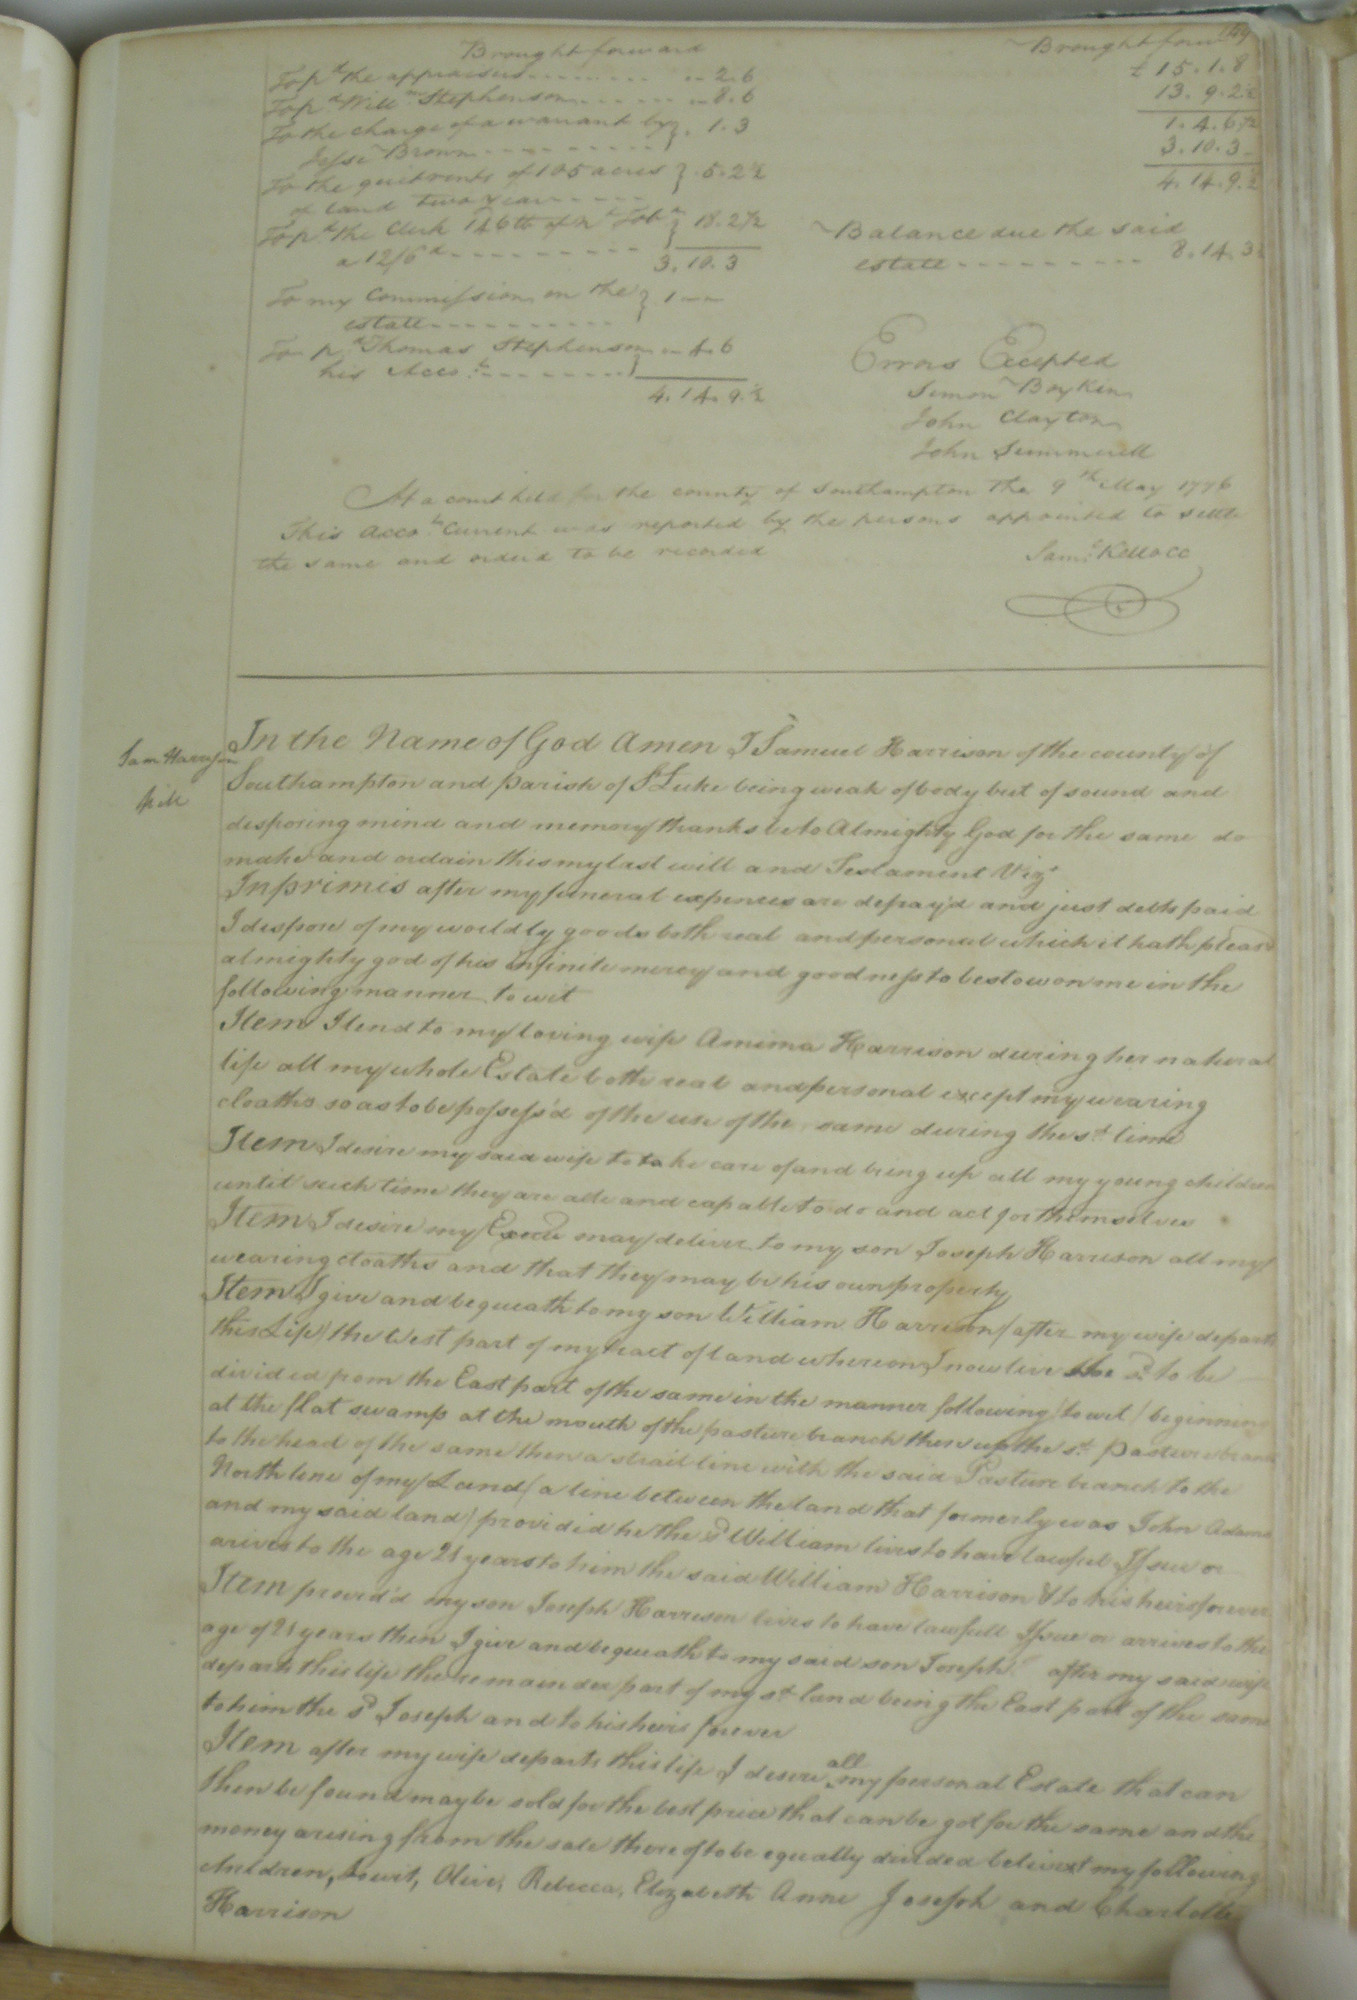 Brought forward
To p.d the appraisers - - - - - - - - - - 2.6
To p.d Will.m Stephenson - - - - - - - 8.6
To the charge of a warrant by } . 1.3
Jesse Brown - - - - - - - - - -
To the quitrents of 105 acres } . 5.2½
of land two years - - - - -
To p.d the Clerk 146 lb of n.t Tob.o } 18.2½
a 12/6 d - - - - - - - - - - -
3.10.3
To my Commission on the } 1 - -
estate - - - - - - - - - -
To p.d Thomas Stephenson - - 4.6
his Acco.t - - - - - - - - }
4.14.9.½
149
Brought forw
£ 15.1.8
13.9.2½
1.4.6½
3.10.3
4.14.9.½
Balance due the said
estate - - - - - - - - - 8.14.3
Errors Excepted
Simon Boykin
John Clayton
John Summerell
At a court held for the county of Southampton the 9th May 1776
This Acco.t Current was reported by the persons appointed to settle
the same and orderd to be recorded
Sam.l Kello CC
Sam Harrison
Will
In the Name of God Amen I Samuel Harrison of the county of
Southampton and parish of S.t Luke being weak of body but of sound and
disposing mind and memory thanks be to Almighty God for the same do
make and ordain this my last will and Testament Viz.t
Inprimis after my funeral expences are defray'd and just debts paid
I dispose of my worldly goods both real and personal which it hath pleas'd
almighty god of his infinite mercy and goodness to bestow on me in the
following manner to wit
Item I lend to my loving wife Amima Harrison during her natural
life all my whole Estate both real and personal except my wearing
cloaths so as to be possess'd of the use of the same during the s.d time
Item I desire my said wife to take care of and bring up all my young children
until such time they are able and capable to do and act for themselves
Item I desire my Exers may deliver to my son Joseph Harrison all my
wearing cloaths and that they may be his own property
Item I give and bequeath to my son William Harrison (after my wife departs
this Life) the West part of my tract of land whereon I now live the s.d to be
divided from the East part of the same in the manner following (to wit) beginning
at the flat swamp at the mouth of the pasture branch then up the s.d Pasture branch
to the head of the same then a strait line with the said Pasture branch to the
North line of my Land (a line between the land that formerly was John Adams
and my said land) provided he the s.d William lives to have lawful Issue or
arives to the age 21 years to him the said William Harrison & to his heirs forever
Item provid'd my son Joseph Harrison lives to have lawfull Issue or arrives to the
age of 21 years then I give and bequeath to my said son Joseph after my said wife
departs this life the remainder part of my s.d land being the East part of the same
to him the s.d Joseph and to his heirs forever
Item after my wife departs this life I desire all my personal Estate that can
then be found may be sold for the best price that can be got for the same and the
money arising from the sale thereof to be equally divided betwixt my following
children, towit, Olive, Rebecca, Elizabeth Anne Joseph and Charlotte
Harrison